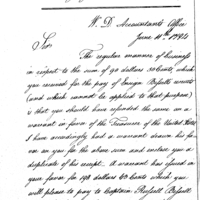 W. D. Accountants Office
June 11th 1794
Sir
The regular manner of business
in respect to the sum of 90 dollars 50 cents, which
you received for the pay of Ensign Bissells arrears
(and which cannot be applied to that purpose)
is that you should have refunded the same on a
warrant in favor of the Treasurer of the United States
I have accordingly had a warrant drawn his fa-
vor on you for the above sum and enclose you a
duplicate of his receipt. A warrant has issued in
your favor for 198 dollars 60 Cents which you
will please to pay to Captain Russell Bissell